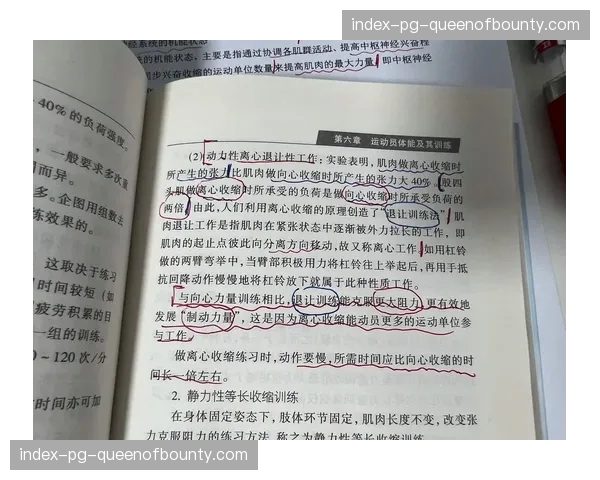 index-pg-queenofbounty.com
经系统的机能状态
的机能状态，主要是指通过协调各肌群活动、提高中枢神经兴奋程
同步兴奋收缩的运动单位数量来提高肌肉的最大力量，即中枢神经
40%的负荷强度，
一般要求多次重
而异。
多。企图用组数去
练效果的。
这取决于练习
时间较短（如
疲劳积累的日
一组的训练。
0～120次/分
时间亦可加
第六章 运动员体能及其训练
(2) 动力性离心退让性工作：实验表明，肌肉做离心收缩时
所产生的张力比肌肉做向心收缩时所产生的张力大40%。股四
头肌做离心收缩时所承受的负荷是做向心收缩时所承受负荷的
两倍。由此，人们利用离心收缩的原理创造了“退让训练法”。肌
肉退让工作是指肌肉在紧张状态中逐渐被外力拉长的工作，即
肌肉的起止点彼此向分离方向移动，故又称离心工作。如用杠铃
做的两臂弯举中，当臂部积极用力将杠铃往上举起后，再用于抵
抗回降动作慢慢地将杠铃放下就属于此种性质工作。
与向心力量训练相比，退让训练能克服更大阻力，更有效地
发展“制动力量”，这是因为离心收缩能动员更多的运动单位参
与工作。
做离心收缩练习时，动作要慢，所需时间应比向心收缩的时
间长一倍左右。
2. 静力性等长收缩训练
在身体固定姿态下，肢体环节固定，肌肉长度不变，改变张
力克服阻力的练习方法，称之为静力性等长收缩训练
index-pg-queenofbounty.com